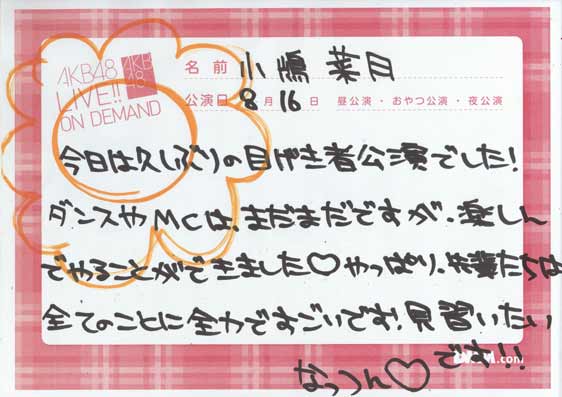 AKB48
LIVE!!
ON DEMAND
AKB
48
名前 小嶋菜月
公演日 8月16日 昼公演・おやつ公演・夜公演
今日は久しぶりの目げき者公演でした!
ダンスやMCは、まだまだですが、楽しん
でやることができました♡やっぱり、先輩たちは
全てのことに全力ですごいです!見習いたい
です!!
なっつん♡
.com